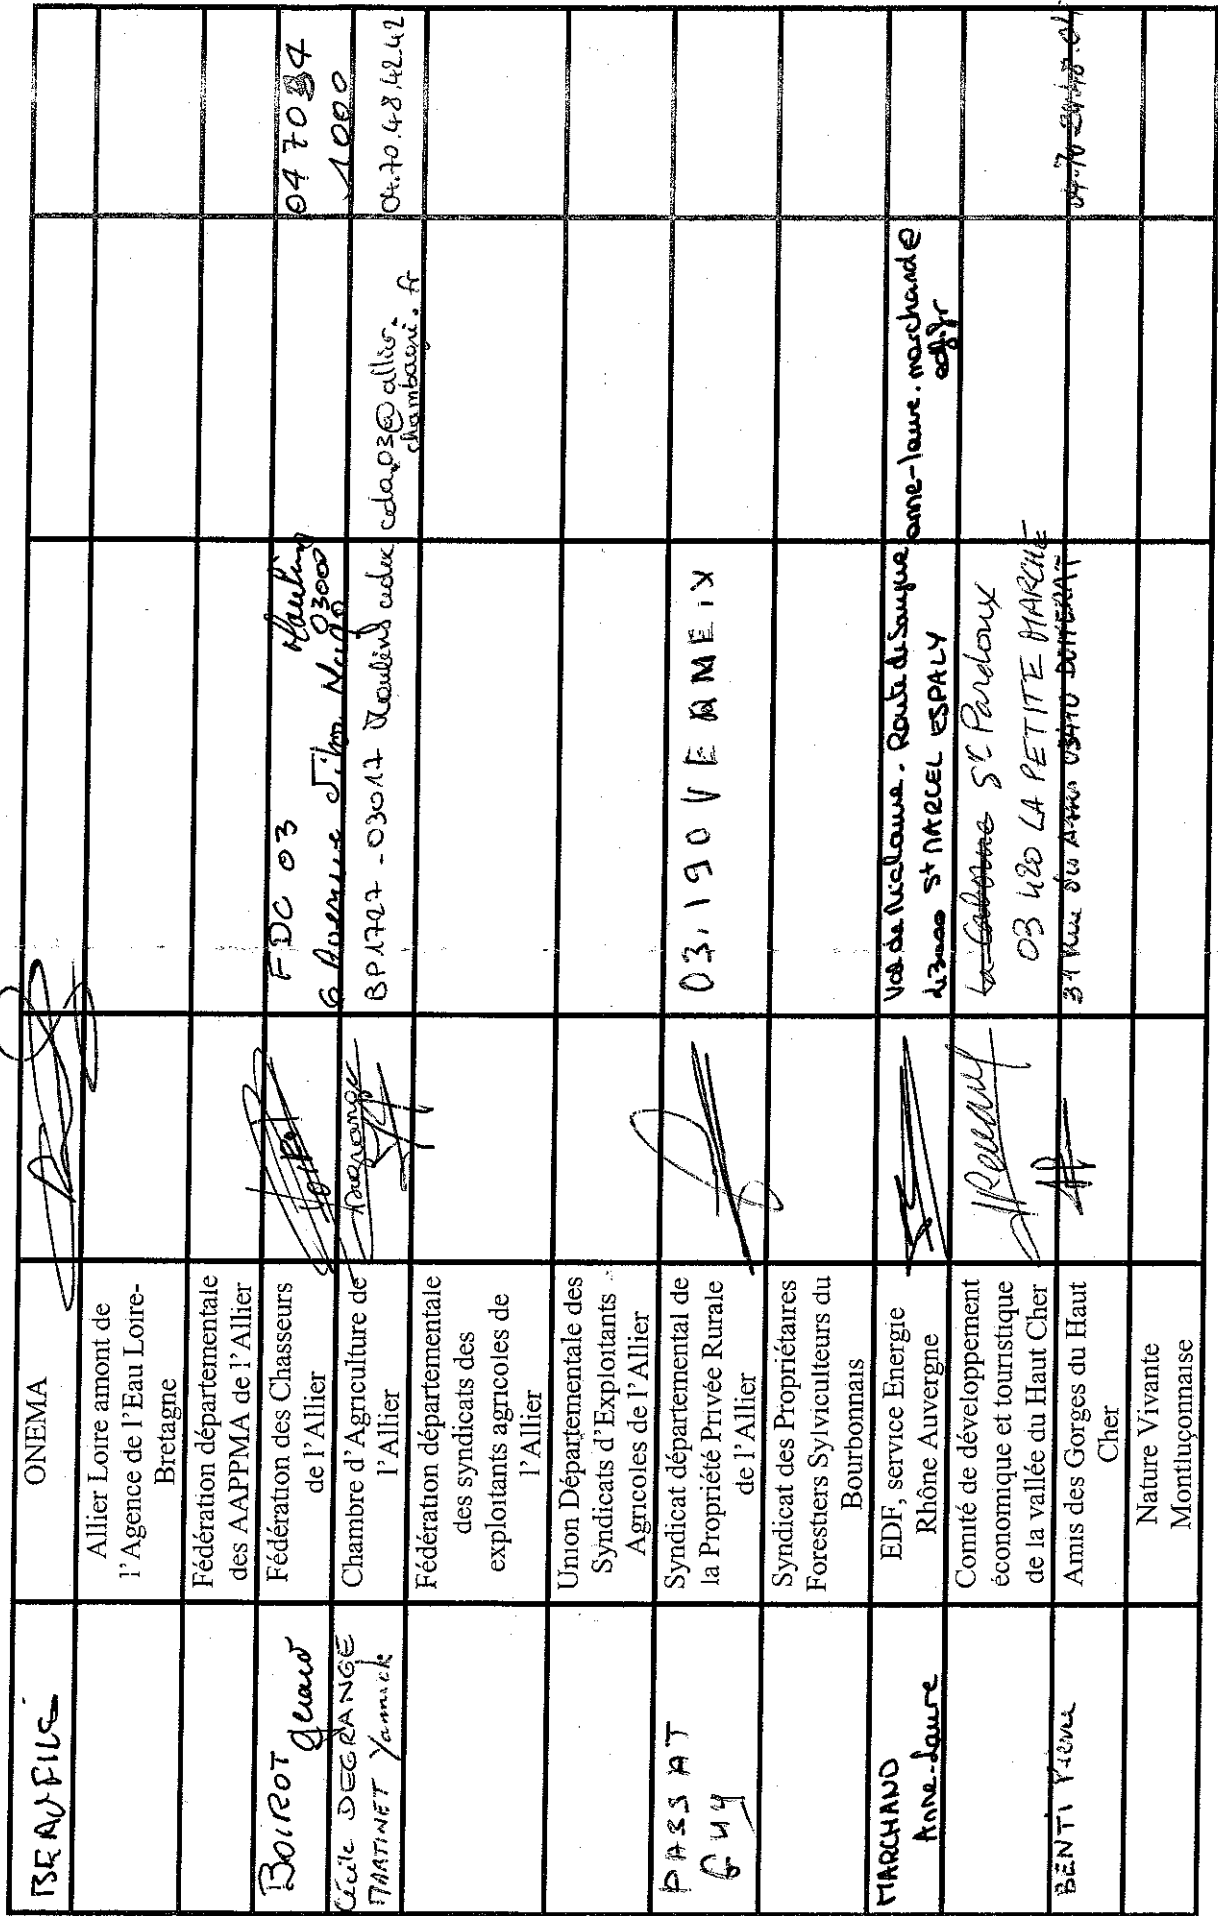 BEAUFILS
ONEMA
Allier Loire amont de
l'Agence de l'Eau Loire-
Bretagne
Fédération départementale
des AAPPMA de l'Allier
BOIROT
Gérard
Fédération des Chasseurs
de l'Allier
FDC 03
6 Avenue Victor Hugo
Moulins
03000
047034
1000
Cécile DEGRANGE
MARTINET Yannick
Chambre d'Agriculture de
l'Allier
Degrange
BP 1727 - 03017 Moulins cedex
cda.03@allier.
chambagri.fr
04.70.48.42.42
Fédération départementale
des syndicats des
exploitants agricoles de
l'Allier
Union Départementale des
Syndicats d'Exploitants
Agricoles de l'Allier
PASSAT
GUY
Syndicat départemental de
la Propriété Privée Rurale
de l'Allier
03.190 VERNEIX
Syndicat des Propriétaires
Forestiers Sylviculteurs du
Bourbonnais
MARCHAND
Anne-Laure
EDF, service Energie
Rhône Auvergne
Route de
St MARCEL ESPALY
anne-laure.marchand@
edf.fr
Comité de développement
économique et touristique
de la vallée du Haut Cher
St Pardoux
03 420 LA PETITE MARCHE
BENTI Pierre
Amis des Gorges du Haut
Cher
31 Rue des 03410 DOMERAT
Nature Vivante
Montluçonnaise